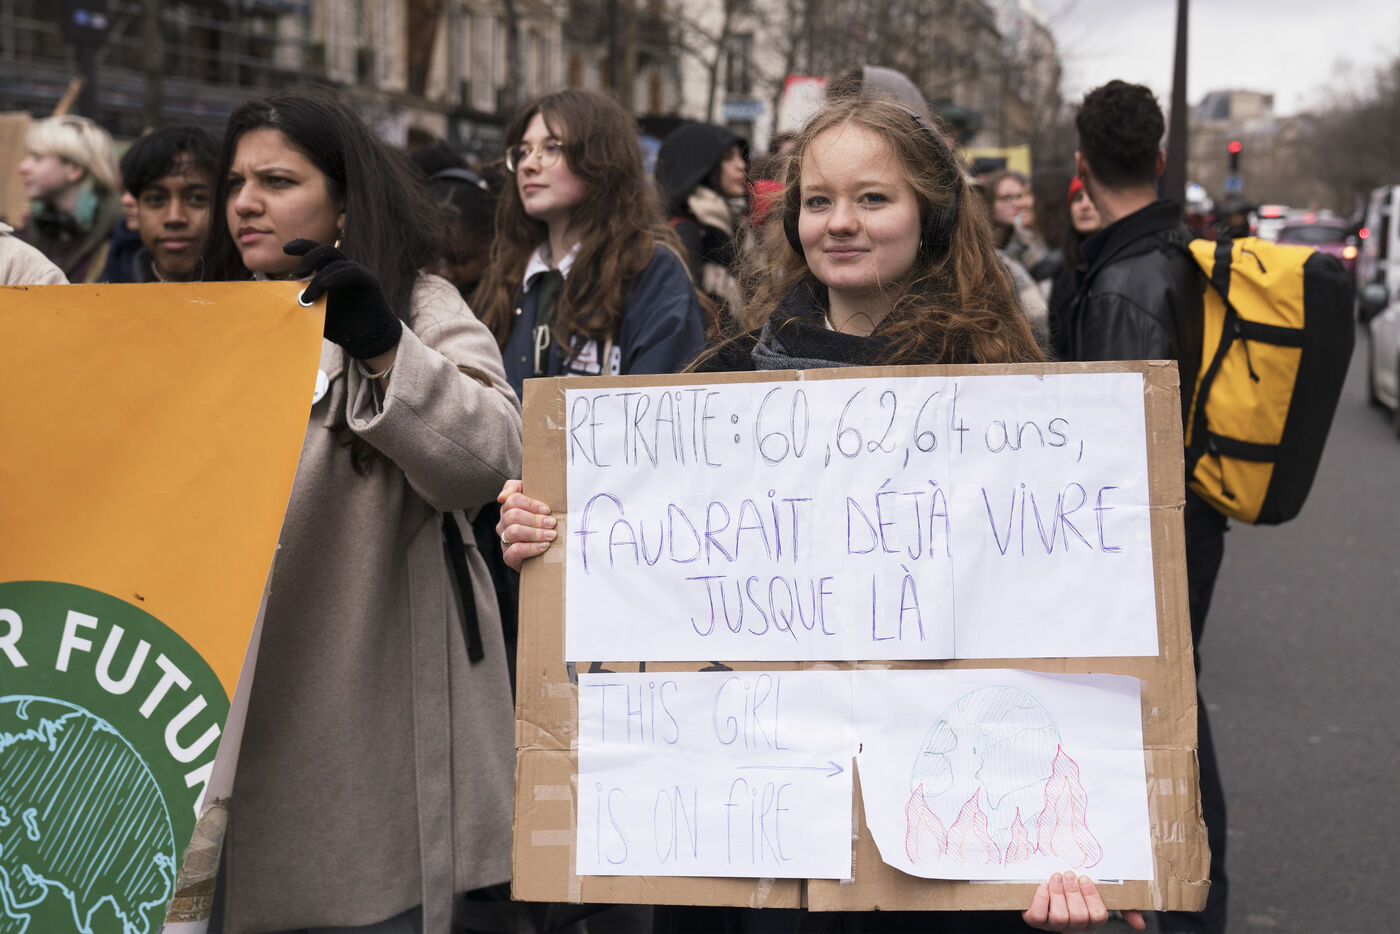 RETRAITE : 60, 62, 64 ans,
fAUDRAIT DÉJÀ VIVRE
JUSQUE LÀ
THIS GIRL
IS ON fIRE
R FUTU